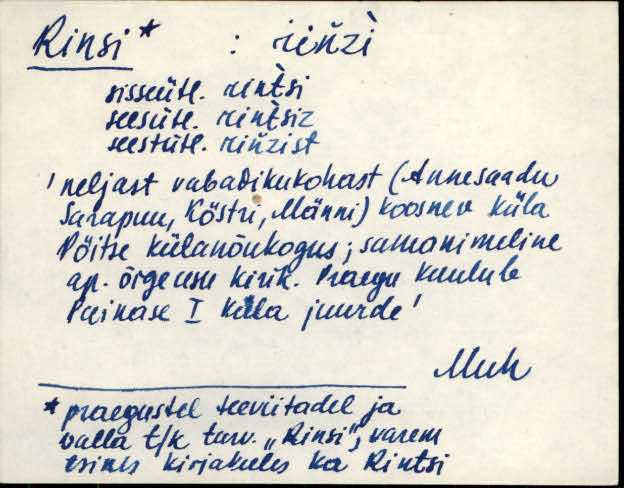 Rinsi* : rińzì
sisseütl. rintsi
seesütl. rintsiz
seestütl. rińzist
'neljast vabadikukohast (Annesaadu
Sarapuu, Köstri, Männi) koosnev küla
Pöitse külanõukogus; samanimeline
ap. õigeusu kirik. Praegu kuulub
Painase I küla juurde'
Muh
* praegustel teeviitadel ja
valla t/k tarv. „Rinsi", varem
esines kirjakeeles ka Rintsi